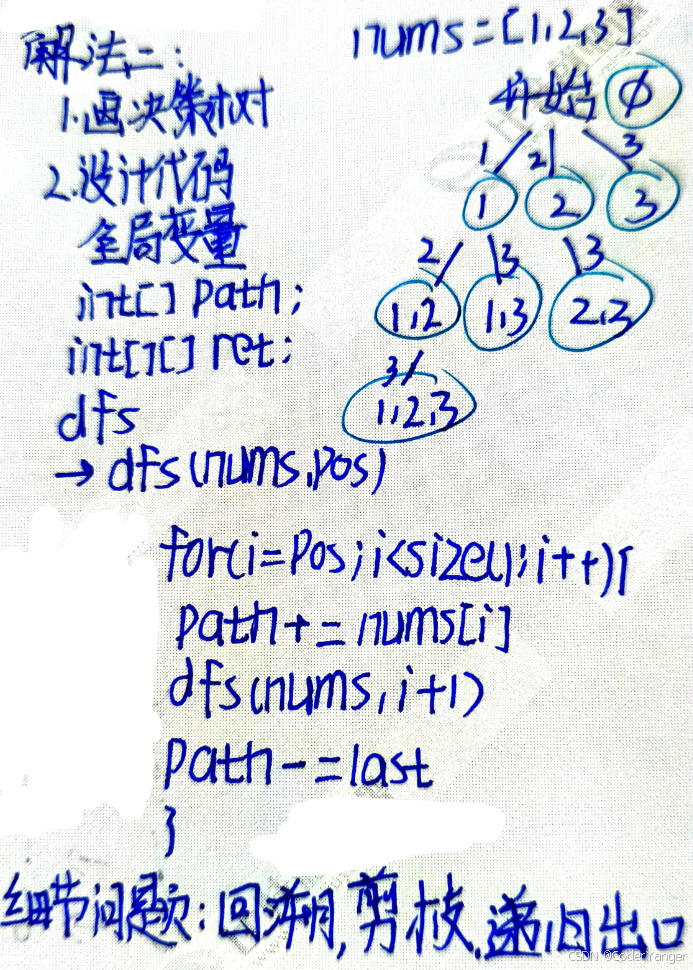 解法二：
1.画决策树
2.设计代码
全局变量
int[] path;
int[][] ret;
dfs
→ dfs(nums,pos)
for(i=pos;i<size();i++){
path+=nums[i]
dfs(nums,i+1)
path-=last
}
细节问题：回溯,剪枝,递归出口
nums=[1,2,3]
开始 ∅
1 2 3
1 2 3
2 3 3
1,2 1,3 2,3
3
1,2,3
CSDN @CodeRanger